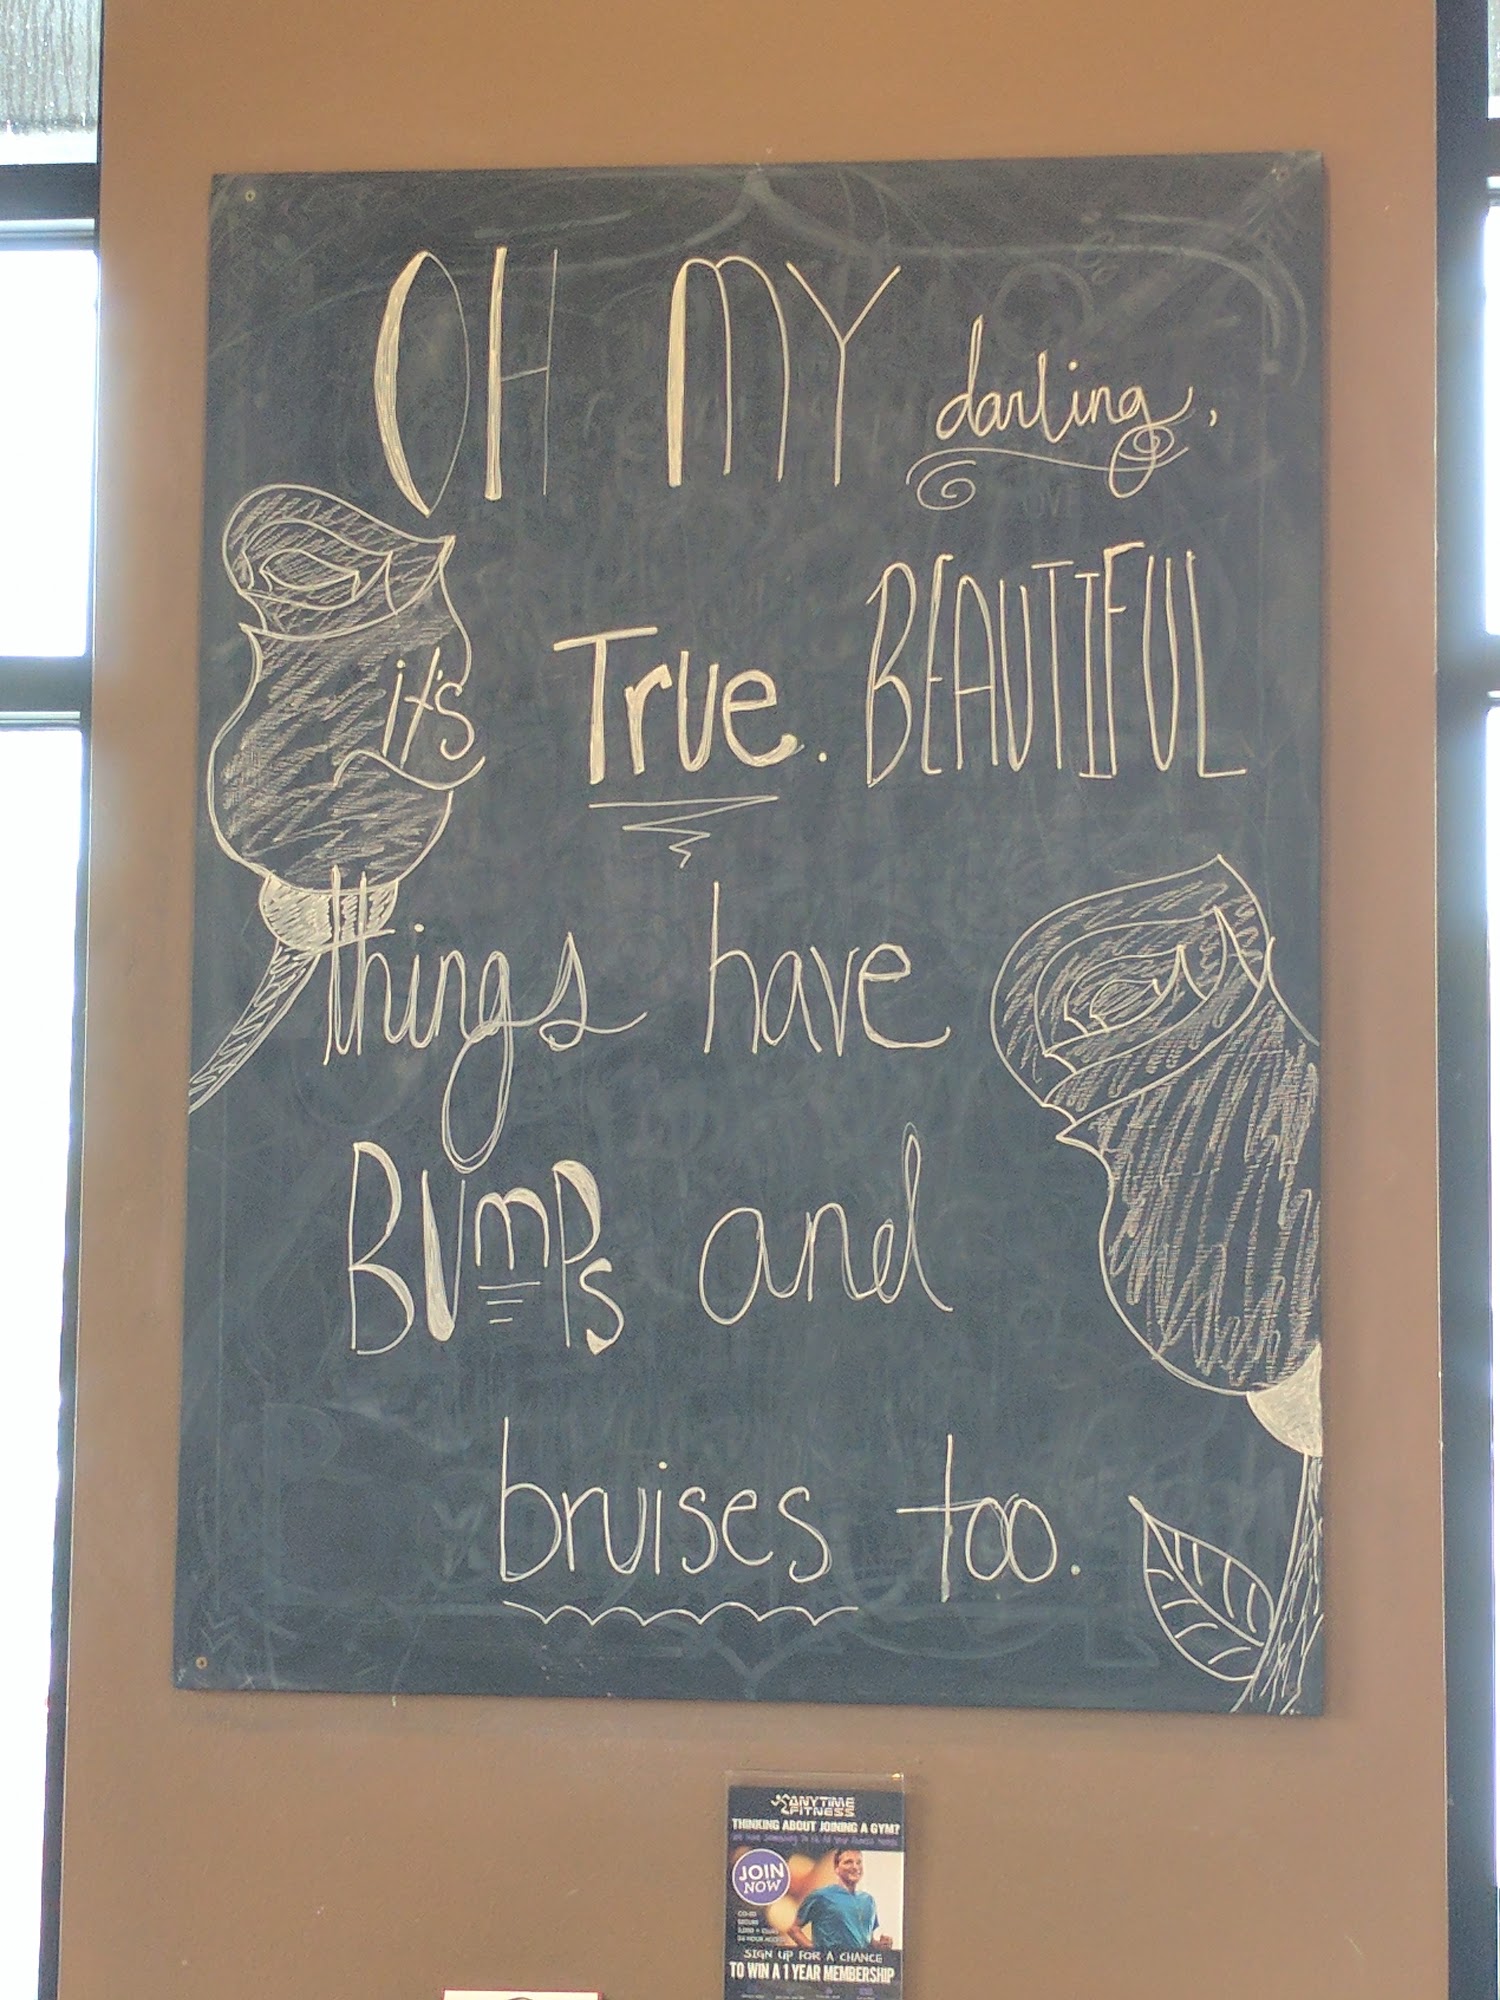 OH MY darling,
it's True. BEAUTIFUL
things have
BUMPs and
bruises too.
ANYTIME
FITNESS
THINKING ABOUT JOINING A GYM?
JOIN
NOW
SIGN UP FOR A CHANCE
TO WIN A 1 YEAR MEMBERSHIP